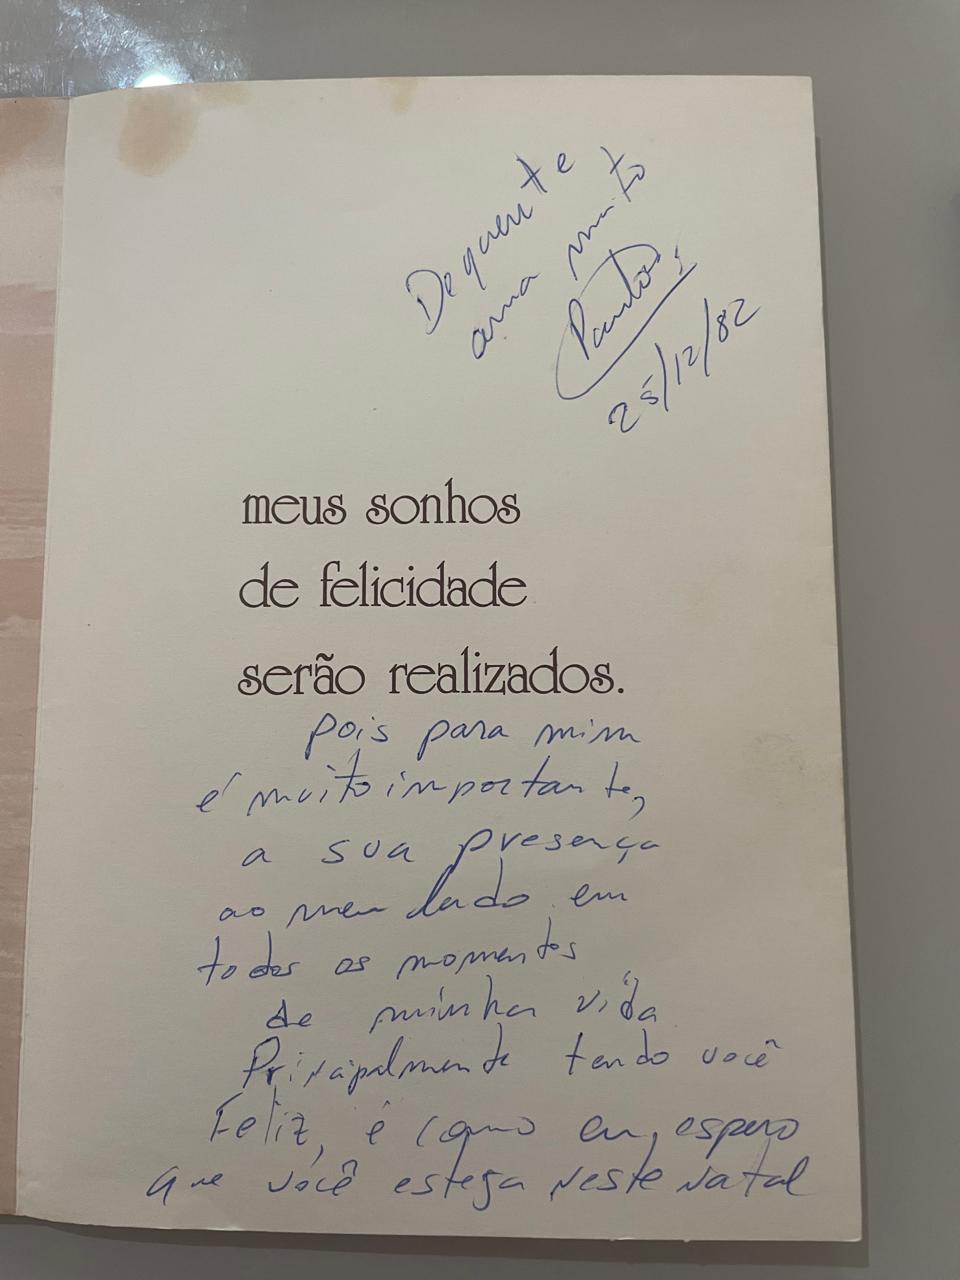 De quem te
ama muito
25/12/82
meus sonhos
de felicidade
serão realizados.
pois para mim
é muito importante,
a sua presença
ao meu lado em
todos os momentos
de minha vida
Principalmente tendo você
Feliz, é como eu, espero
que você esteja neste natal